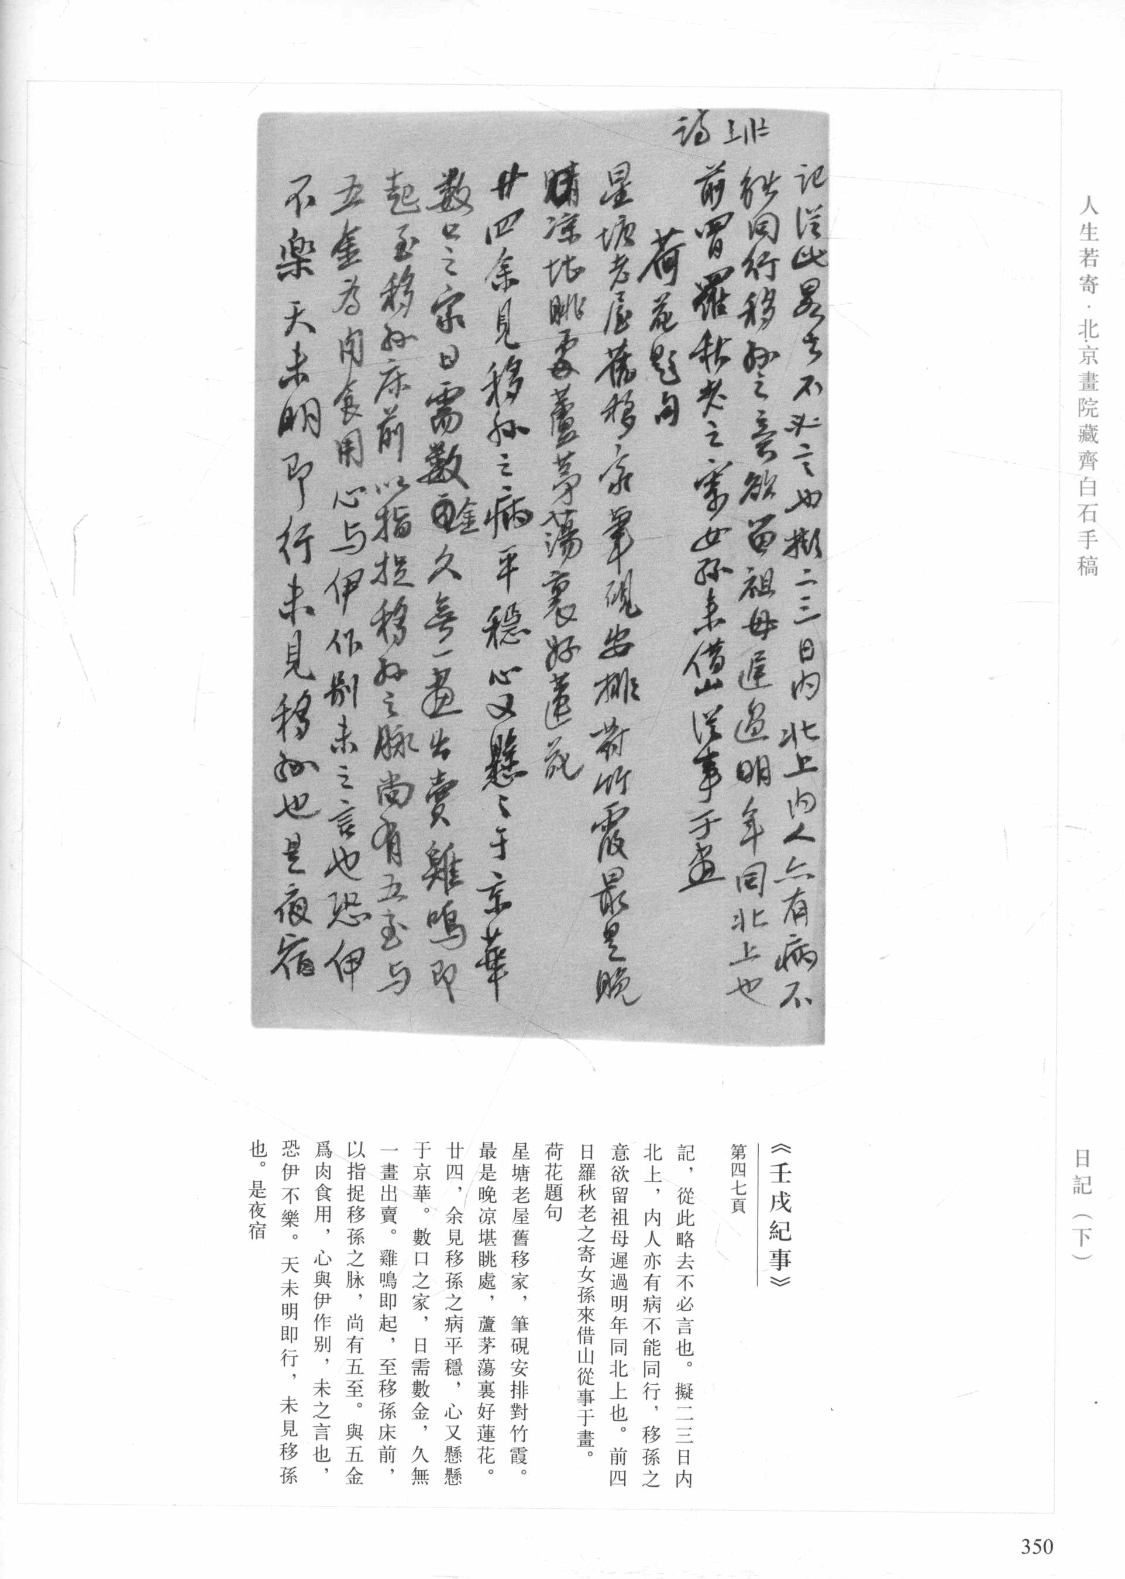 人生若寄·北京畫院藏齊白石手稿
日記（下）
記從此畧去不必言也擬二三日內北上內人亦有病不
能同行移孫之意欲留祖母遲過明年同北上也
前四日羅秋老之寄女孫來借山從事于畫
荷花題句
星塘老屋舊移家筆硯安排對竹霞最是晚
晴涼堪眺處蘆茅蕩裏好蓮花
廿四余見移孫之病平穩心又懸〻于京華
數口之家日需數金久無一畫出賣雞鳴即
起至移孫床前以指捉移孫之脉尚有五至与
五金為肉食用心与伊作别未之言也恐伊
不樂天未明即行未見移孫也是夜宿
《壬戌紀事》
第四七頁
記，從此略去不必言也。擬二三日内
北上，内人亦有病不能同行，移孫之
意欲留祖母遲過明年同北上也。前四
日羅秋老之寄女孫來借山從事于畫。
荷花題句
星塘老屋舊移家，筆硯安排對竹霞。
最是晚凉堪眺處，蘆茅蕩裏好蓮花。
廿四，余見移孫之病平穩，心又懸懸
于京華。數口之家，日需數金，久無
一畫出賣。雞鳴即起，至移孫床前，
以指捉移孫之脉，尚有五至。與五金
爲肉食用，心與伊作别，未之言也，
恐伊不樂。天未明即行，未見移孫
也。是夜宿
350